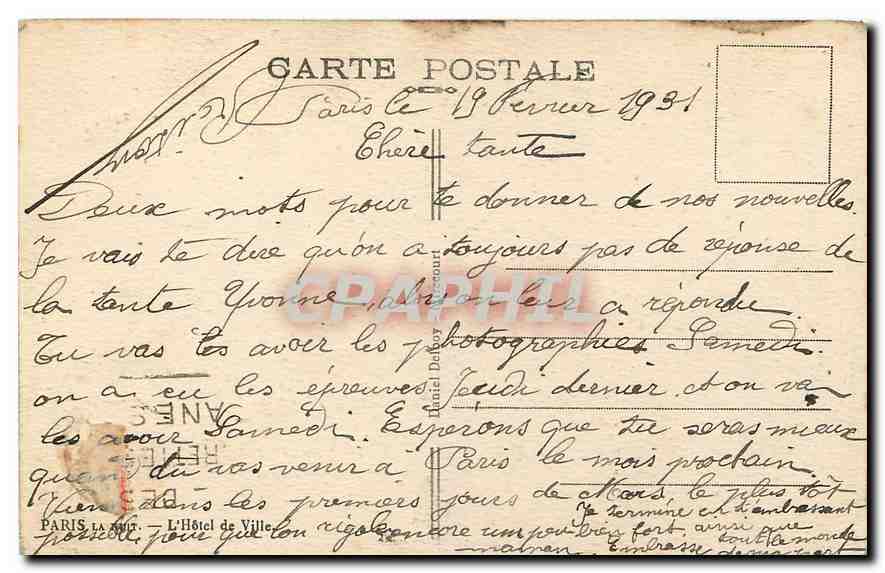 CARTE POSTALE
Paris le 19 Février 1931
Chère tante
Deux mots pour te donner de nos nouvelles.
Je vais te dire qu'on a toujours pas de réponse de
la tante Yvonne, alors on leur a répondu.
Tu vas les avoir les photographies Samedi.
on a eu les épreuves Jeudi dernier et on va
les avoir Samedi. Esperons que tu seras mieux
quand tu vas venir à Paris le mois prochain
Viens dans les premiers jours de Mars, le plus tôt
possible, pour que l'on rigole encore un peu
Je termine en t'embrassant
bien fort ainsi que
tout le monde
maman. Embrasse
de ma part
PARIS LA NUIT. — L'Hôtel de Ville.
Daniel Delboy
CPAPHIL